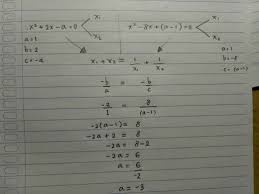 x² + 2x - a = 0 x₁ x₂
x² - 8x + (a-1) = 0 x₁ x₂
a = 1
b = 2
c = -a
a = 1
b = -8
c = (a-1)
x₁ + x₂ = 1/x₁ + 1/x₂
-b/a = -b/c
-2/1 = 8
-2(a-1) = 8
-2a + 2 = 8
-2a = 8-2
-2a = 6
a = 6/-2
a = -3